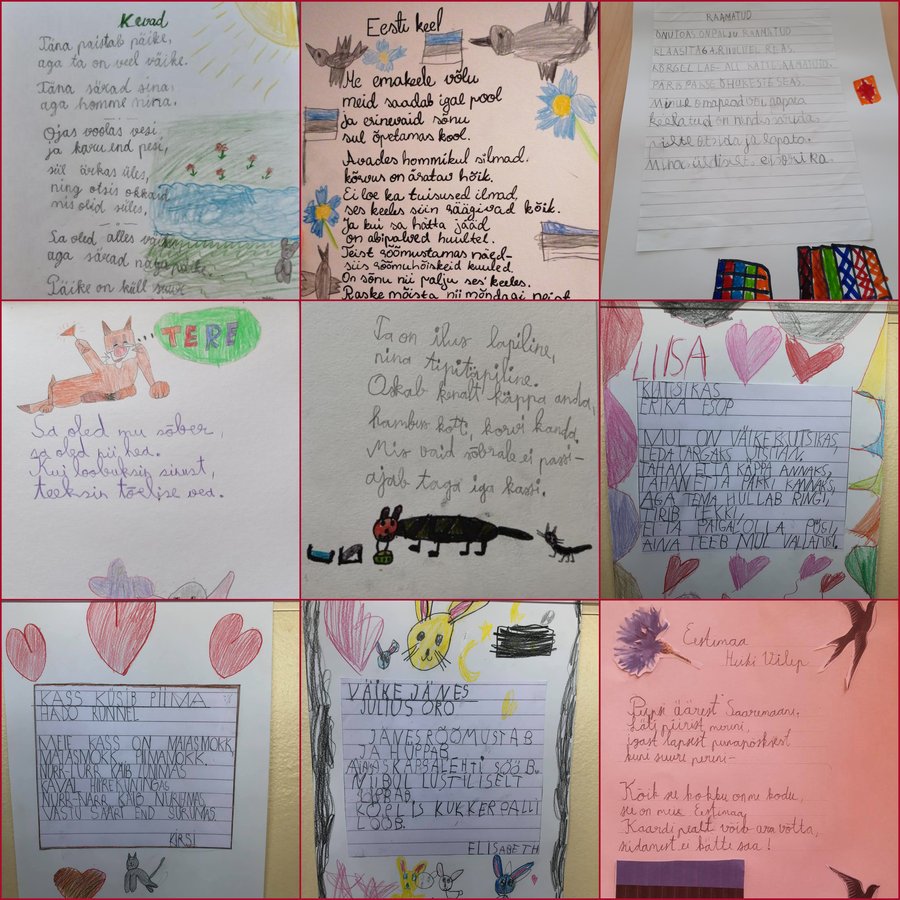 Kevad
Täna paistab päike,
aga ta on veel väike.
Täna särad sina,
aga homme mina.
Ojas voolas vesi,
ja karu end pesi,
siil ärkas üles,
ning otsis okkaid
mis olid süles,
Sa oled alles väike
aga särad nagu päike.
Päike on küll suur
Eesti keel
Me emakeele võlu
meid saadab igal pool
ja erinevaid sõnu
sul õpetamas kool.
Avades hommikul silmad,
kõrvus on äratav hõik.
Ei loe ka tuisused ilmad,
ses keeles siin räägivad kõik.
Ja kui sa hätta jääd
on abipalved huultel.
Teist rõõmustamas näed-
siis rõõmuhõiskeid kuuled.
On sõnu nii palju ses keeles.
Raske mõista nii mõndagi neist
RAAMATUD
ON PALJU RAAMATUD
KLAASITAGA RIIULIL REAS.
KÕRGEL LAE ALL
PAKSUKESTE SEAS.
Minu omapead või
on nindis
otsida ja lapata.
Mina üldiselt ei
TERE
Sa oled mu sõber,
sa oled nii hea.
Kui loobuksin sinust,
teeksin tõelise vea.
Ta on ilus lapiline,
nina tipitäpiline.
Oskab kenalt käppa anda,
hambus koti, korvi kanda.
Mis vaid sõbrale ei passi-
ajab taga iga kassi.
LIISA
KUTSIKAS
ERIKA ESOP
MUL ON VÄIKE KUTSIKAS,
TEDA TARGAKS UTSITAN.
TAHAN ET TA KÄPPA ANNAKS,
TAHAN ET TA PAKKI KANNAKS,
AGA TEMA HULLAB RINGI,
TIRIB TEKKI,
EI TA PAIGAL OLLA PÜSI,
AINA TEEB MUL VALLATUSI.
KASS KÜSIB PIIMA
HADO RUNNEL
MEIE KASS ON MAIASMOKK,
MAIASMOKK, PIIMANOKK.
NURR-TURR KÄIB LININAS
KAVAL HIIREKUNINGAS
NURR-NÄRR KÄIB NURUMAS
VASTU SÄÄRT END SURUMAS.
KIRSI
VÄIKE JÄNES
JULIUS ORO
JÄNES RÕÕMUSTAB
JA HÜPPAB
AIAS KAPSALEHTI SÖÖB.
NIIDUL LUSTILISELT
LIPPAB
KÕRTIS KUKKERPALLI
LÖÖB.
ELISABETH
Eestimaa
Huki Vülup
Peipsi äärest Saaremaani,
Läti piirist mereni,
igast lapsest punapõsksest
kuni suure pereni-
Kõik see kokku on me kodu,
see on meie Eestimaa
Kaardi pealt võib ära võtta,
südamest ei kätte saa!